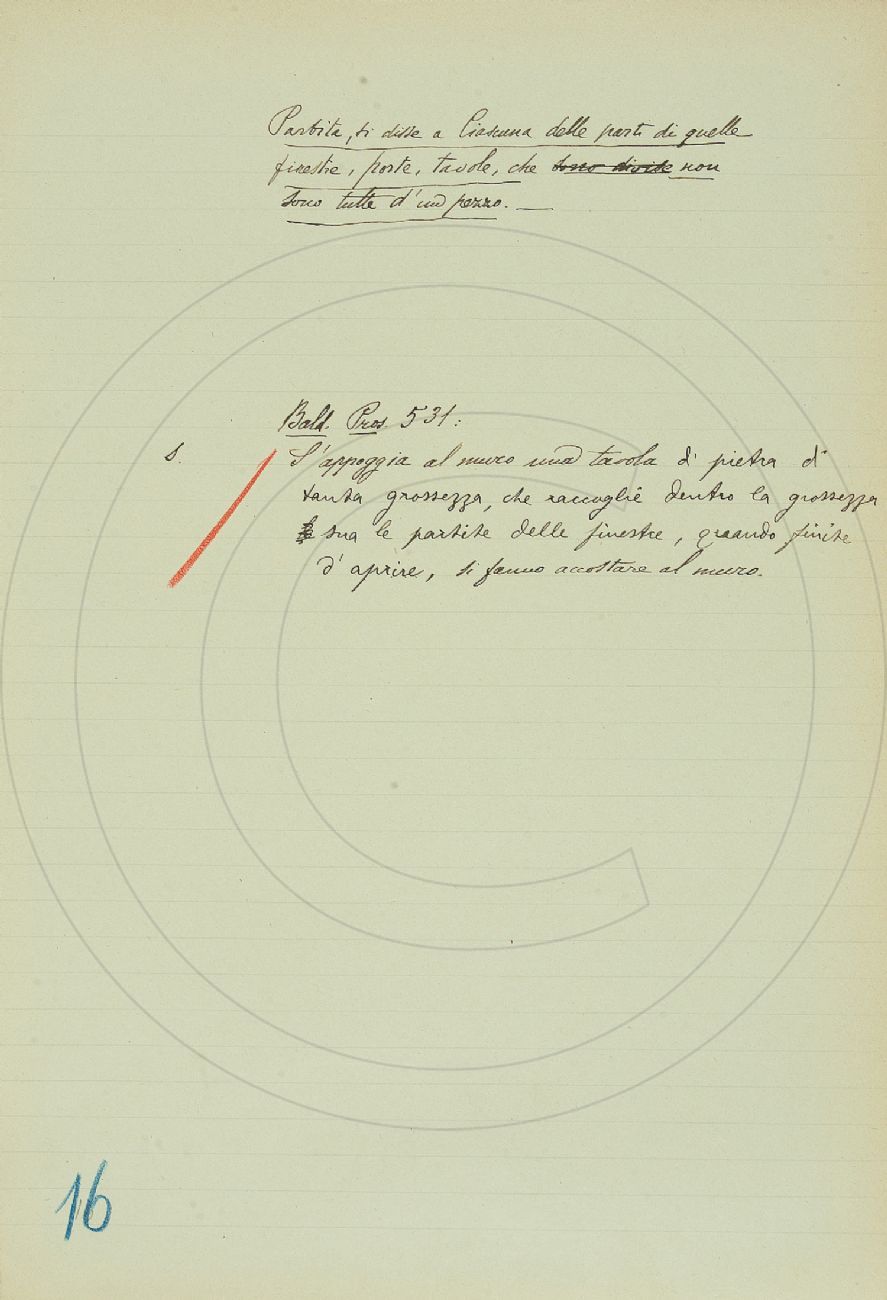 Partita, si disse a Ciascuna delle parti di quelle
finestre, porte, tavole, che sono divise non
sono tutte d'un pezzo. —
Bald. Pros. 531:
S. S'appoggia al muro una tavola di pietra di
tanta grossezza, che raccoglie dentro la grossezza
sua le partite delle finestre, quando finite
d'aprire, si fanno accostare al muro.
16